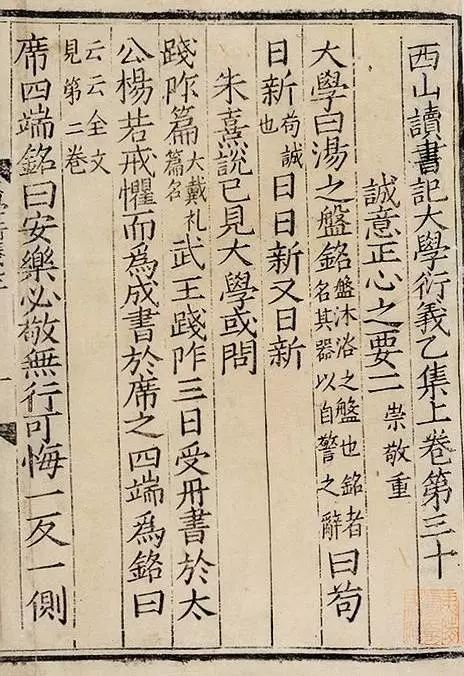 西山讀書記大學衍義乙集上卷第三十
誠意正心之要二 崇敬重
大學曰湯之盤銘盤沐浴之盤也銘者名其器以自警之辭曰苟
日新苟誠也日日新又日新
朱熹說已見大學或問
踐阼篇大戴礼篇名武王踐阼三日受冊書於太
公楊若戒懼而爲成書於席之四端爲銘曰
云云全文見第二卷
席四端銘曰安樂必敬無行可悔一反一側